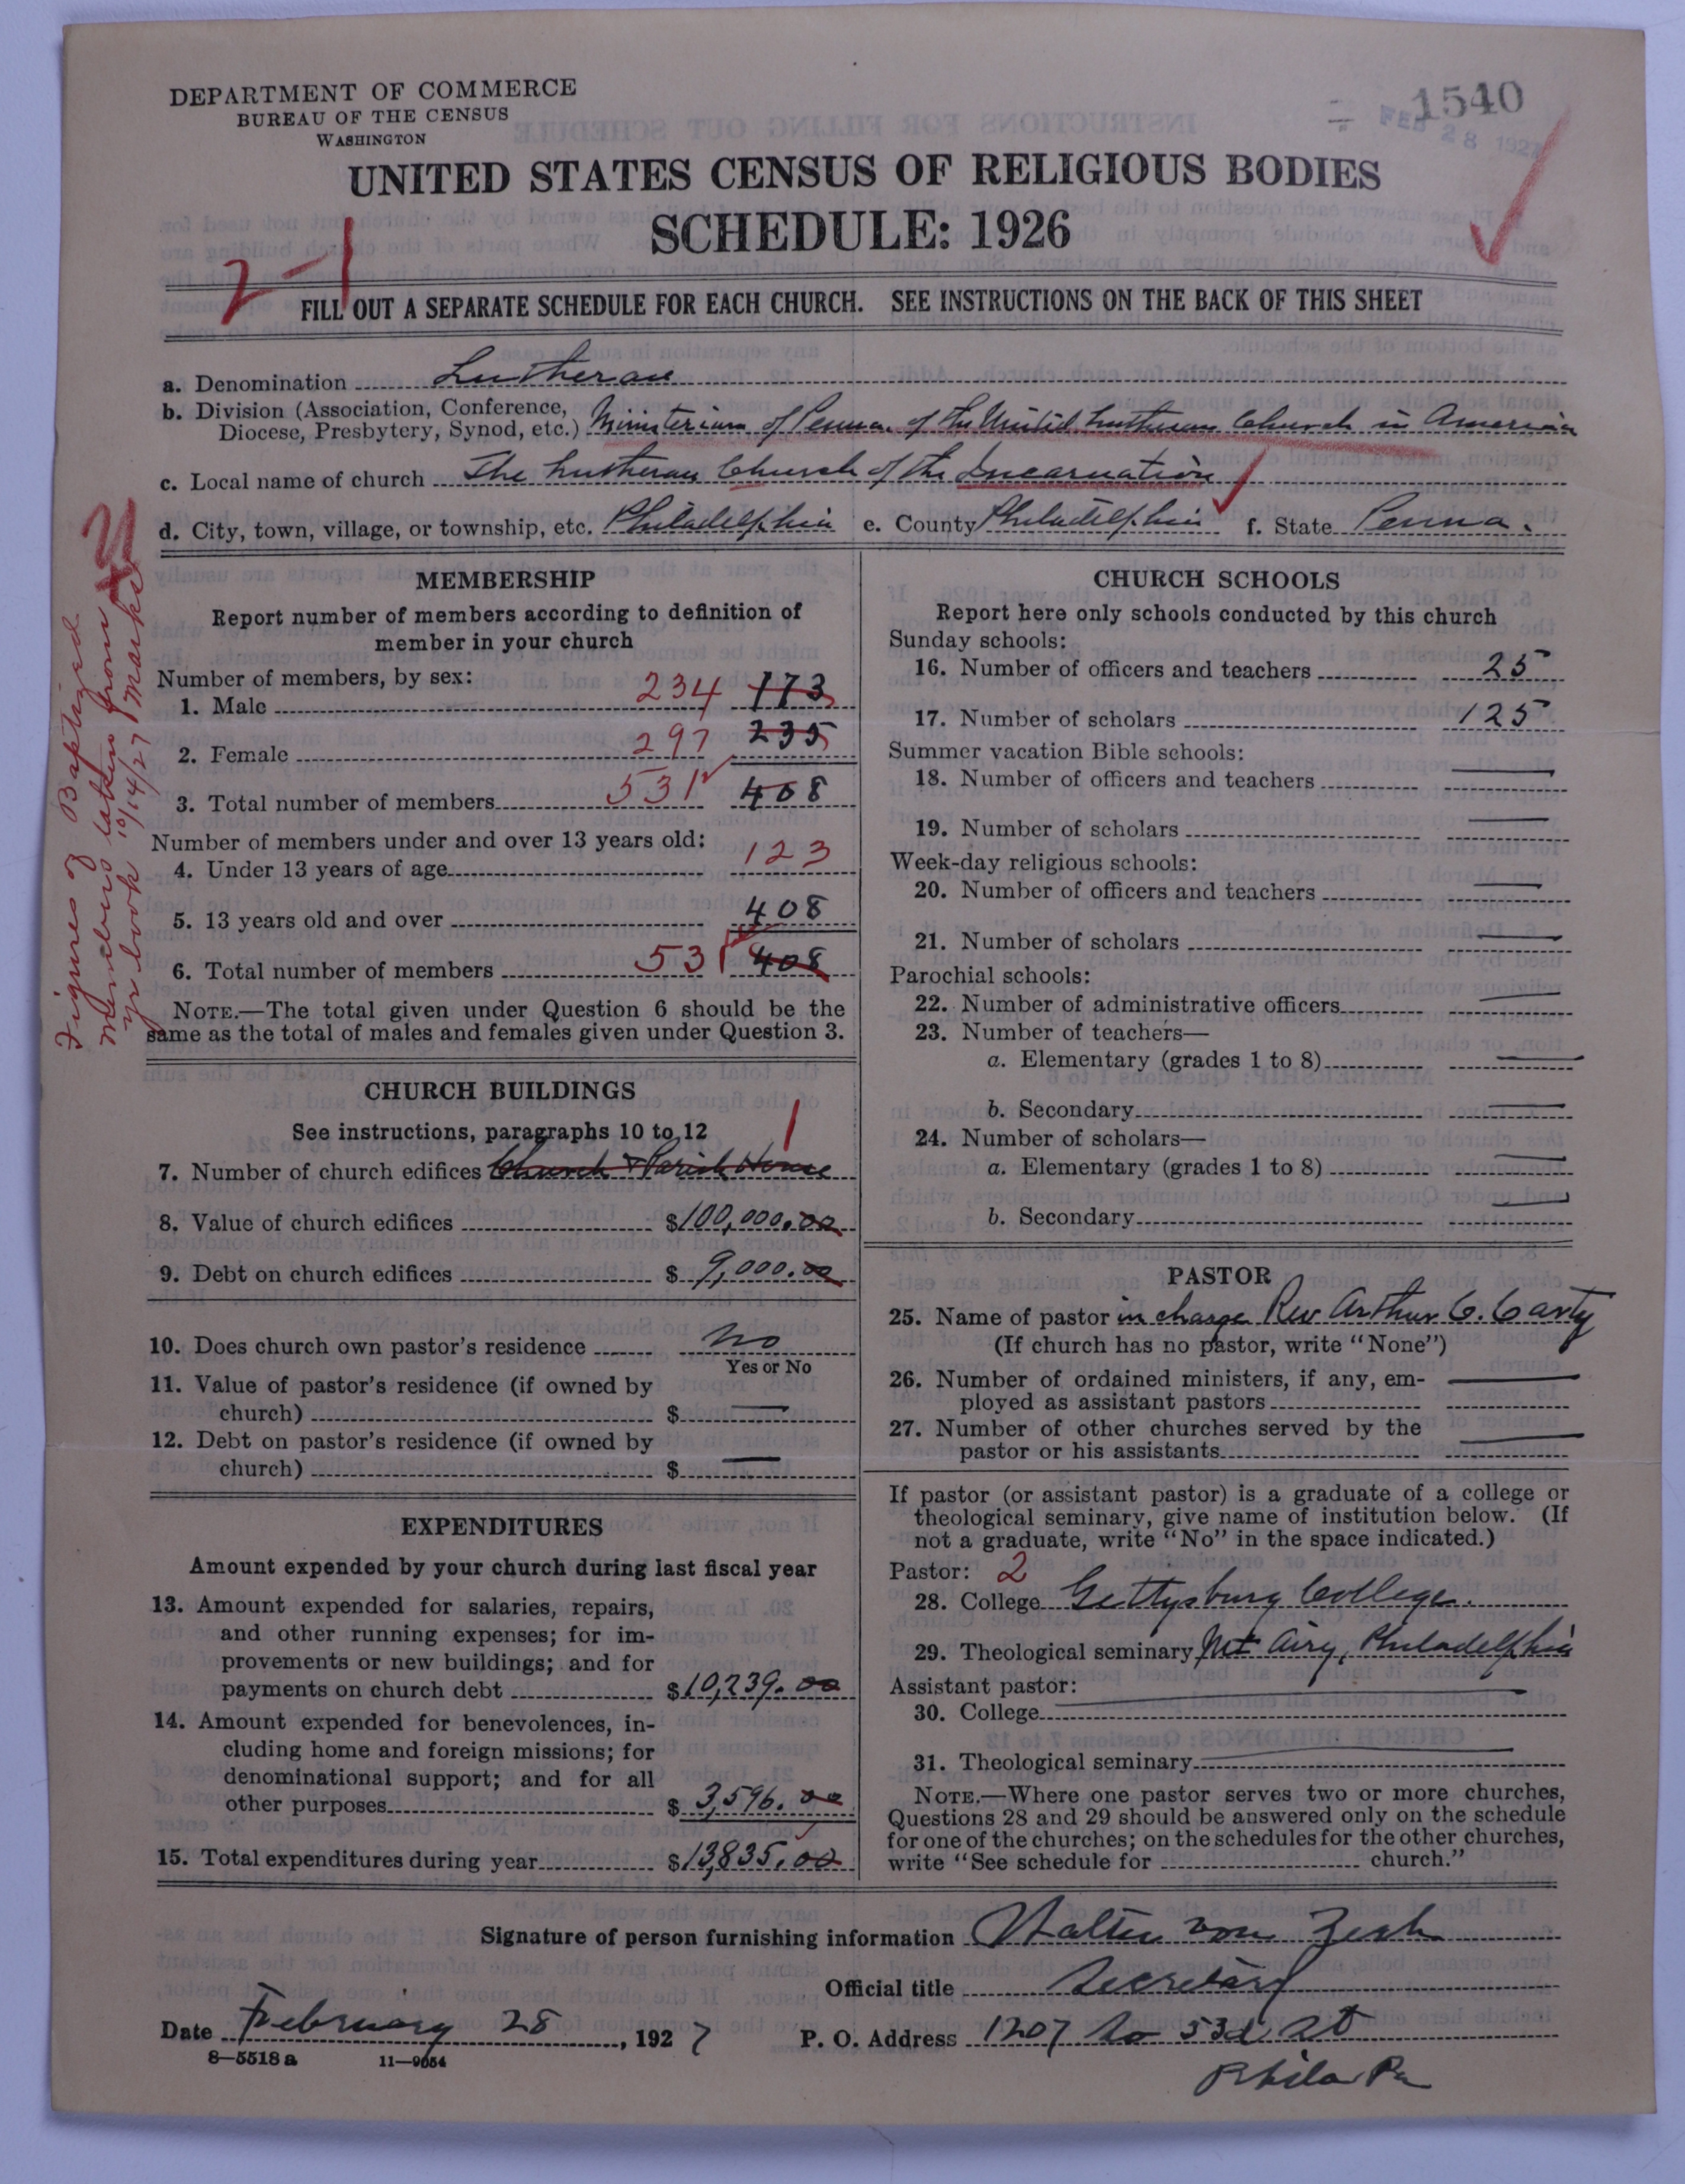 DEPARTMENT OF COMMERCE
BUREAU OF THE CENSUS
WASHINGTON
1540
FEB 28 192
UNITED STATES CENSUS OF RELIGIOUS BODIES
SCHEDULE: 1926
2-1
FILL OUT A SEPARATE SCHEDULE FOR EACH CHURCH. SEE INSTRUCTIONS ON THE BACK OF THIS SHEET
a. Denomination Lutheran
b. Division (Association, Conference, Diocese, Presbytery, Synod, etc.) Ministerium of Penna. of the United Lutheran Church in America
c. Local name of church The Lutheran Church of the Incarnation
d. City, town, village, or township, etc. Philadelphia e. County Philadelphia f. State Penna.
Figures of Baptized
members taken from
yr book 10/14/27 Marks
MEMBERSHIP
Report number of members according to definition of
member in your church
Number of members, by sex:
1. Male 234 173
2. Female 297 235
3. Total number of members 531 408
Number of members under and over 13 years old:
4. Under 13 years of age 123
5. 13 years old and over 408
6. Total number of members 531 408
NOTE.—The total given under Question 6 should be the
same as the total of males and females given under Question 3.
CHURCH BUILDINGS
See instructions, paragraphs 10 to 12
7. Number of church edifices Church & Parish House 1
8. Value of church edifices $100,000.00
9. Debt on church edifices $ 9,000.00
10. Does church own pastor's residence No
Yes or No
11. Value of pastor's residence (if owned by
church) $ —
12. Debt on pastor's residence (if owned by
church) $ —
EXPENDITURES
Amount expended by your church during last fiscal year
13. Amount expended for salaries, repairs,
and other running expenses; for im-
provements or new buildings; and for
payments on church debt $10,239.00
14. Amount expended for benevolences, in-
cluding home and foreign missions; for
denominational support; and for all
other purposes $ 3,596.00
15. Total expenditures during year $13,835.00
CHURCH SCHOOLS
Report here only schools conducted by this church
Sunday schools:
16. Number of officers and teachers 25
17. Number of scholars 125
Summer vacation Bible schools:
18. Number of officers and teachers —
19. Number of scholars —
Week-day religious schools:
20. Number of officers and teachers —
21. Number of scholars —
Parochial schools:
22. Number of administrative officers —
23. Number of teachers—
a. Elementary (grades 1 to 8) —
b. Secondary —
24. Number of scholars—
a. Elementary (grades 1 to 8) —
b. Secondary —
PASTOR
25. Name of pastor in charge Rev Arthur C. Carty
(If church has no pastor, write "None")
26. Number of ordained ministers, if any, em-
ployed as assistant pastors —
27. Number of other churches served by the
pastor or his assistants —
If pastor (or assistant pastor) is a graduate of a college or
theological seminary, give name of institution below. (If
not a graduate, write "No" in the space indicated.)
Pastor: 2
28. College Gettysburg College.
29. Theological seminary Mt Airy, Philadelphia
Assistant pastor:
30. College —
31. Theological seminary —
NOTE.—Where one pastor serves two or more churches,
Questions 28 and 29 should be answered only on the schedule
for one of the churches; on the schedules for the other churches,
write "See schedule for church."
Signature of person furnishing information Walter von
Official title Secretary
Date February 28, 1927 P. O. Address 1207 So 53d St
Phila Pa
8—5518 a 11—9054